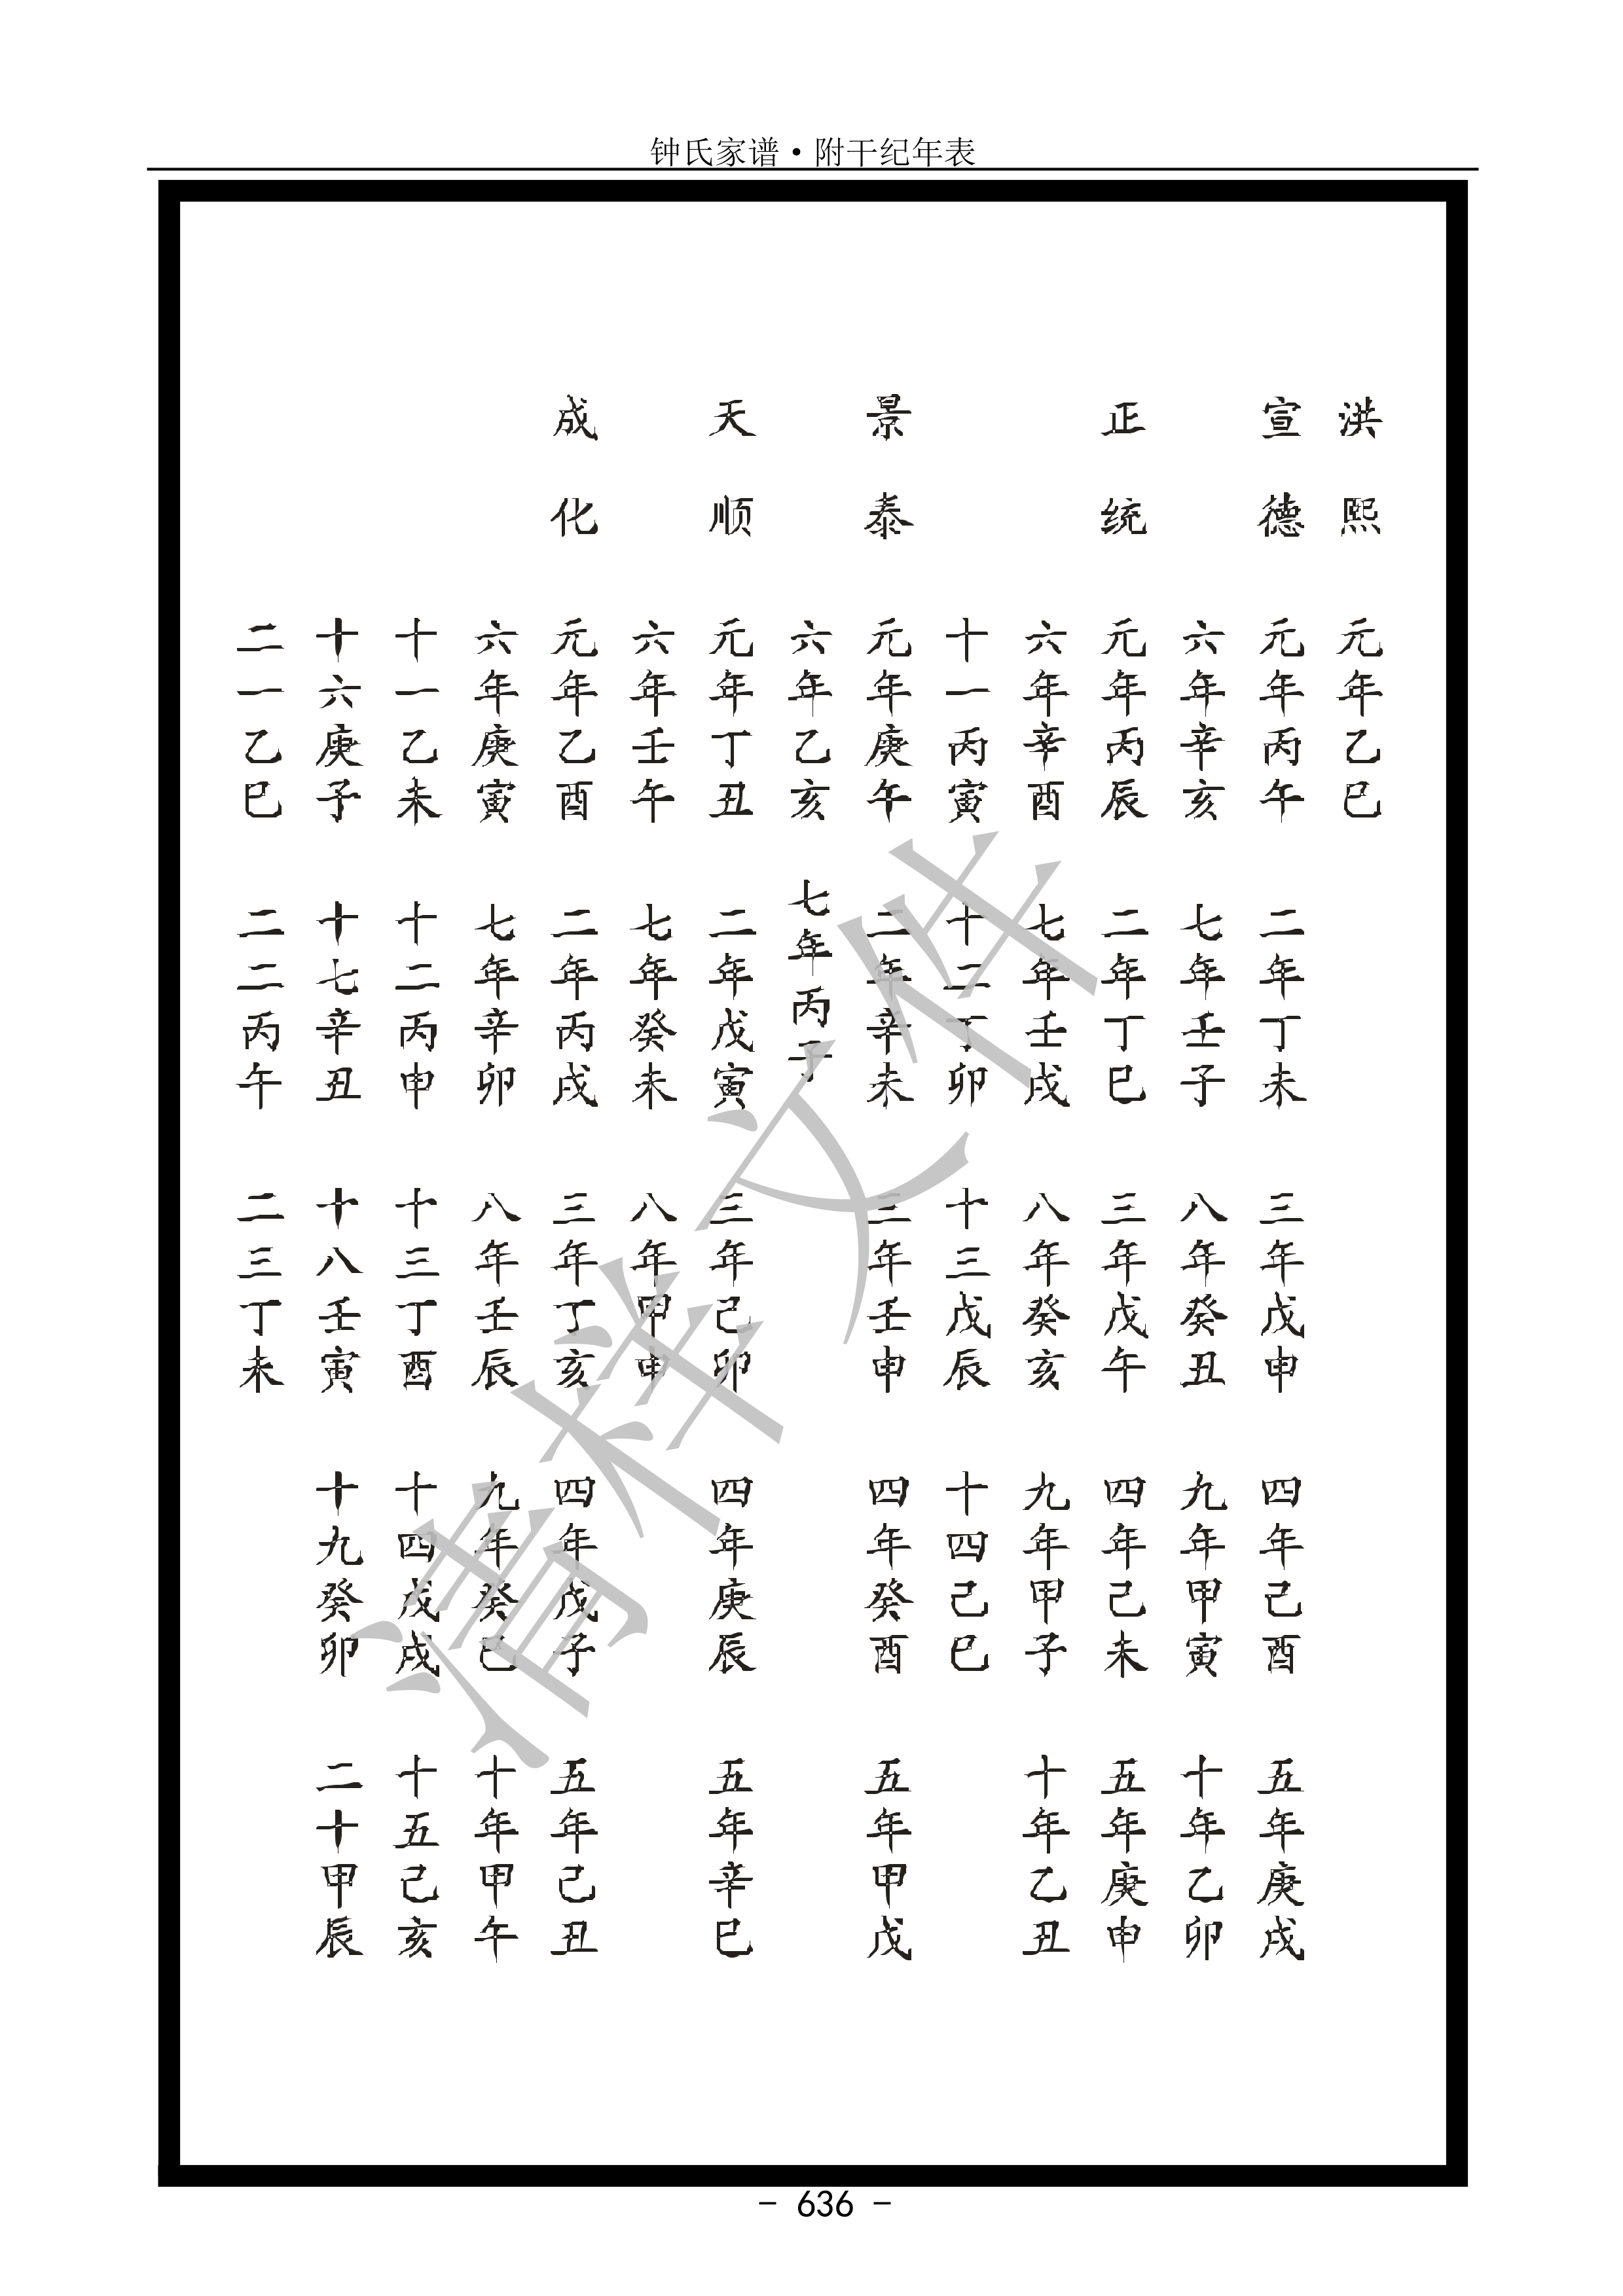 钟氏家谱·附干纪年表
洪熙 元年乙巳
宣德 元年丙午 二年丁未 三年戊申 四年己酉 五年庚戌
六年辛亥 七年壬子 八年癸丑 九年甲寅 十年乙卯
正统 元年丙辰 二年丁巳 三年戊午 四年己未 五年庚申
六年辛酉 七年壬戌 八年癸亥 九年甲子 十年乙丑
十一丙寅 十二丁卯 十三戊辰 十四己巳
景泰 元年庚午 二年辛未 三年壬申 四年癸酉 五年甲戌
六年乙亥 七年丙子
天顺 元年丁丑 二年戊寅 三年己卯 四年庚辰 五年辛巳
六年壬午 七年癸未 八年甲申
成化 元年乙酉 二年丙戌 三年丁亥 四年戊子 五年己丑
六年庚寅 七年辛卯 八年壬辰 九年癸巳 十年甲午
十一乙未 十二丙申 十三丁酉 十四戊戌 十五己亥
十六庚子 十七辛丑 十八壬寅 十九癸卯 二十甲辰
二一乙巳 二二丙午 二三丁未
清样文件
- 636 -